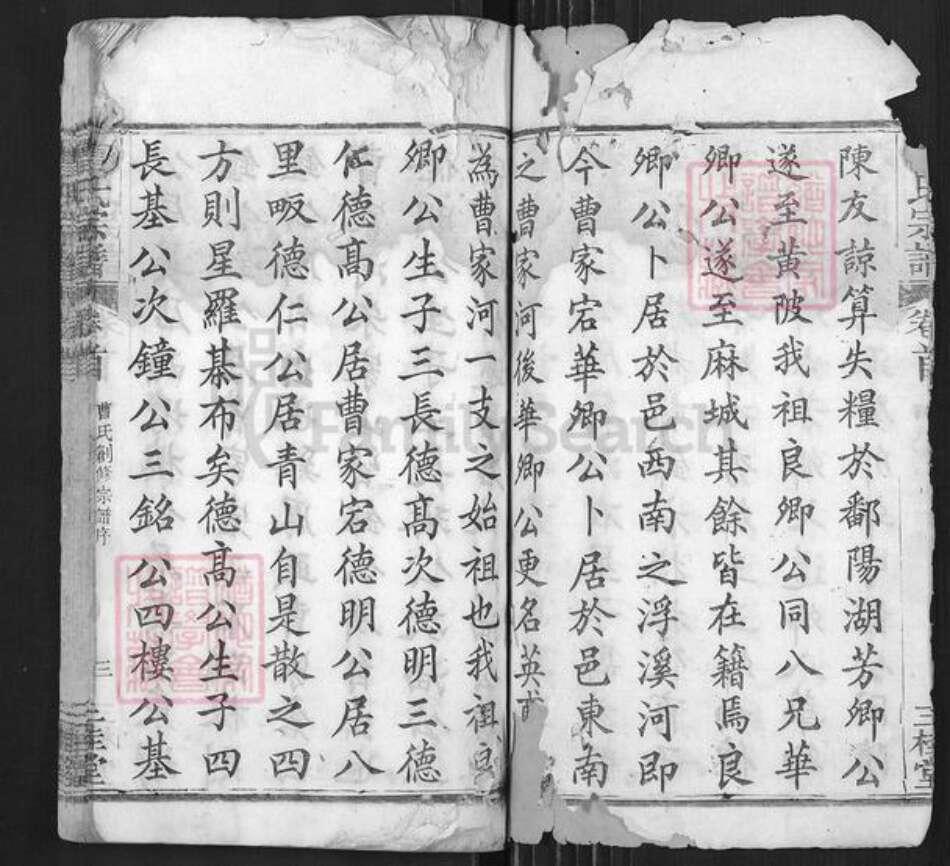 陳友諒算失糧於鄱陽湖芳卿公
遂至黃陂我祖良卿公同八兄華
卿公遂至麻城其餘皆在籍焉良
卿公卜居於邑西南之浮溪河即
今曹家宕華卿公卜居於邑東南
之曹家河後華卿公更名英甫
為曹家河一支之始祖也我祖良
卿公生子三長德高次德明三德
仁德高公居曹家宕德明公居八
里畈德仁公居青山自是散之四
方則星羅棊布矣德高公生子四
長基公次鐘公三銘公四樓公基
氏宗譜 卷首 三桂堂
氏宗譜 卷首 曹氏創修宗譜序 三 三桂堂
FamilySearch